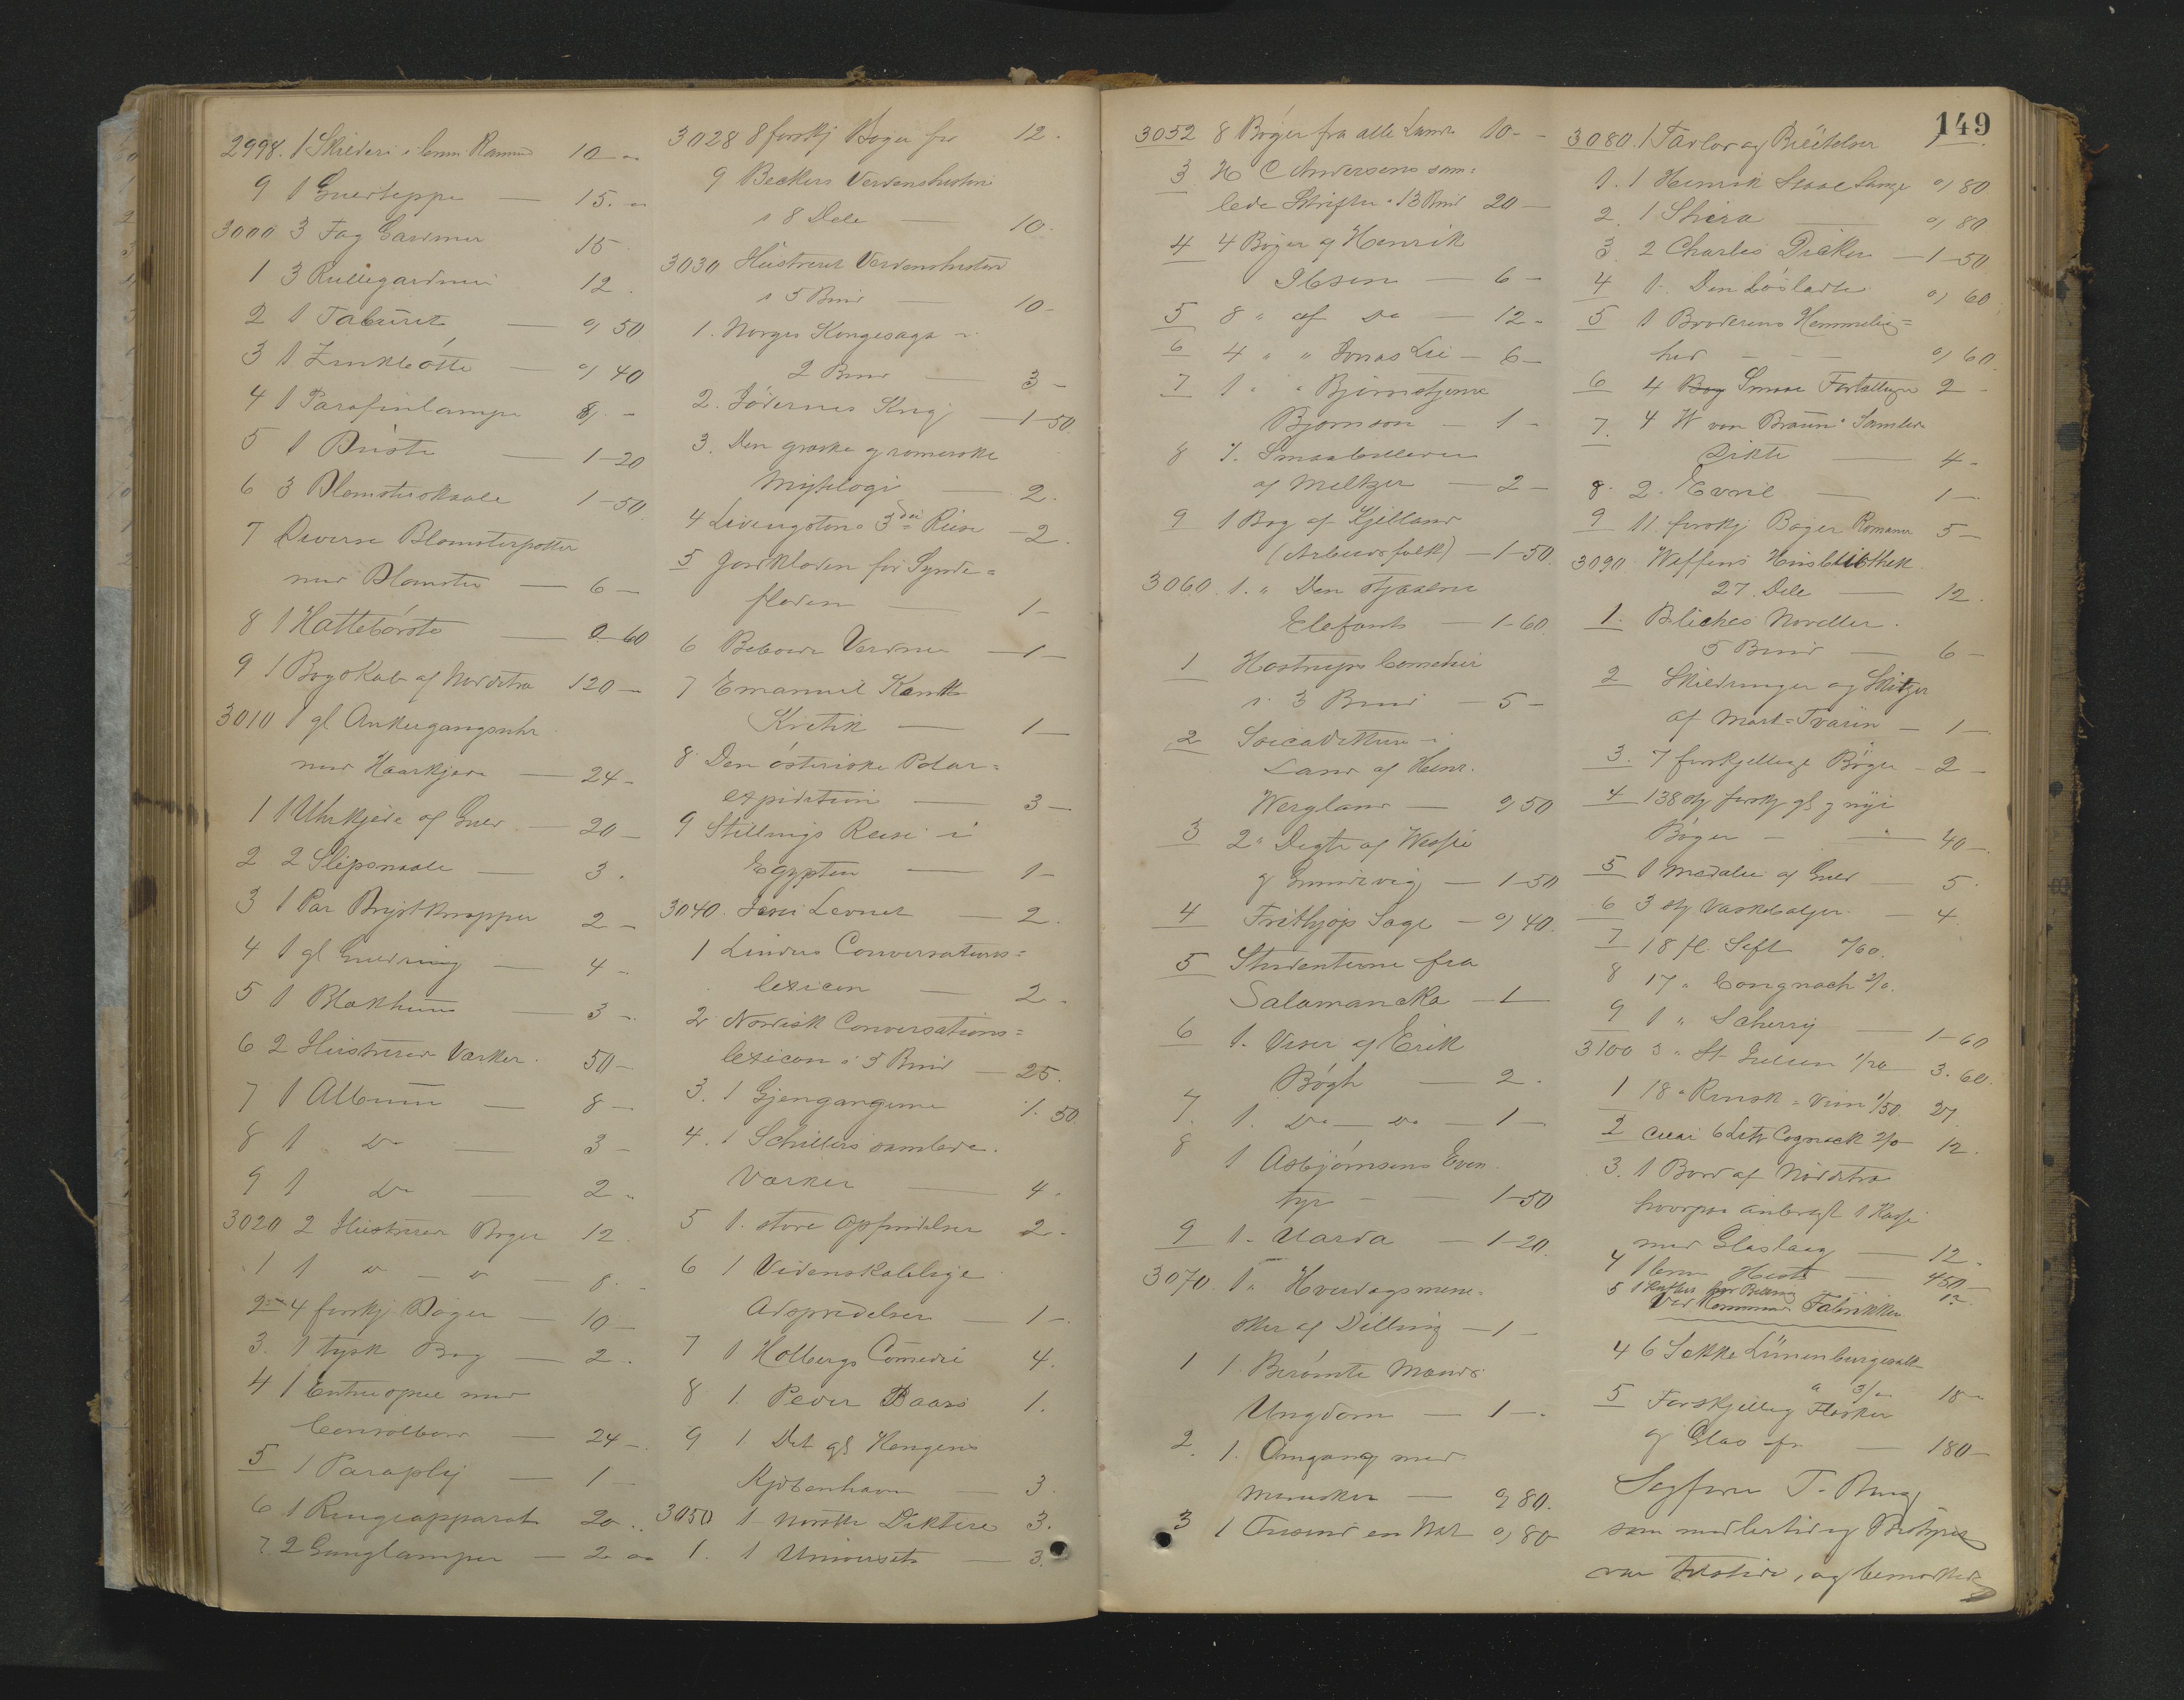 2998. 1 Skilderi i brun Ramme 10 "
9 1 Gulvteppe — 15. "
3000 3 Fag Gardiner 15
1 3 Rullegardiner 12.
2 1 Taburet — 0,50
3 1 Zinkbøtte — 0,40
4 1 Parafinlampe 8, -
5 1 Büste — 1-20
6 3 Blomsterskaale 1-50
7 Diverse Blomsterpotter
med Blomster — 6 —
8 1 Hattebørste — 0-60
9 1 Bogskab af Nøddetræ 120 —
3010 1 gl Ankergangsuhr
med Haarkjede — 24 -
1 1 Uhrkjede af Guld — 20 —
2 2 Slipsnaale — 3.
3 1 Par Brystknapper 2 -
4 1 gl Guldring — 4 -
5 1 Blækhuus — 3 -
6 2 Illustrerede Værker 50 -
7 1 Album — 8 -
8 1 Do — 3 -
9 1 Do — 2 "
3020 2 Illustrerede Bøger 12.
1 1 " — " — 8. -
2 4 forskj Bøger — 10 -
3. 1 tysk Bog — 2.
4 1 Entreespeil med
Consolbord — 24 -
5 1 Paraply — 1 -
6 1 Ringeapparat 20 ..
7. 2 Ganglamper — 2 "
3028 8 forskj Bøger for 12.
9 Beckers Verdenshistorie
i 8 Dele — 10.
3030 Illustreret Verdenshistorie
i 5 Bind — 10 -
1. Norges Kongesaga i
2 Bind — 3 -
2. Jødernes Krig — 1-50
3. Den græske og romerske
Mythologi — 2.
4 Livingstons 3die Reise — 2.
5 Jordkloden før Synde=
floden — 1 -
6 Beboede Verdner — 1 -
7 Emanuel Kants
Kritik — 1 —
8. Den østeriske Polar=
expidition — 3 —
9 Stillings Reise i
Egypten — 1 -
3040. Jesu Levnet — 2.
1 Lindus Conversations=
lexicon — 2 -
2 Nordisk Conversations=
lexicon i 5 Bind — 25.
3. 1 Gjengangerne 1. 50
4. 1 Schillers samlede
Værker — 4.
5 1. store Opfindelser 2 -
6 1 Videnskabelige
Adspredelser — 1 -
7 1 Holbergs Comedie 4.
8 1. Peder Paars 1.
9 1 Det gl Kongens
Kjøbenhavn — 3.
3050 1 norske Diktere 3.
1. 1 Universets — 3.
149
3052 8 Bøger fra alle Lande 10 - -
3 H C Andersens sam=
lede Skrifter 13 Bind 20 —
4 4 Bøger af Henrik
Ibsen — 6 -
5 8 " af Do — 12 -
6 4 " " Jonas Lie — 6 —
7 1 " " Bjørnstjerne
Bjørnson — 1 -
8 1. Smaabilleder
af Meltzer — 2 —
9 1 Bog af Kjelland
(Arbeidsfolk) — 1-50.
3060. 1. " Den stjaalne
Elefant — 1-60.
1 Hostrups Comedier
i 3 Bind — 5 -
2
Land af Henr.
Wergland — 0,50
3 2 " Digte af Wessel
og Grundtvig — 1-50
4 Frithjofs Saga — 0,40.
5 Studenterne fra
Salamancka — 1 —
6 1. Viser af Erik
Bøgh — 2.
7. 1. Do — Do — 1 —
8 1 Asbjørnsens Even
tyr — — 1-50
9 1. Uarda — 1-20.
3070. 1 " Hverdagsmene=
sker af Dilling — 1 -
1 1. Berømte Mænds
Ungdom — 1 -
2. 1. Omgang med
Mennesker — 0,80.
3 1 Tusind en Nat 0,80
3080. 1 Tavlor og Berättelser 1
1. 1 Henrik 0,80
2. 1 Shera — 0,80
3. 2 Charles Dicken — 1-50
4 1. 0,60.
5 1 Broderens Hemmelig=
hed — — 0,60.
6 4 Bog Smaae Fortællinger 2 -
7. 4 W von Braun's Samlede
Dikte — 4 -
8. 2. — 1 -
9 11 forskj Bøger Romaner 5 —
3090 Husbibliothek
27. Dele — 12.
1. Blichers Noveller
5 Bind — 6 -
2 Skildringer og Skitzer
af Mark=Tvain — 1 —
3. 7 forskjellige Bøger — 2 -
4 138 stk forskj gl og nye
Bøger — — 40 —
5 1 Medalie af Guld — 5.
6 3 stk Vaskebaljer — 4
7 18 fl Saft 0/60.
8 17 " Congnach 2/0.
9 1 " Scherry — 1-60
3100 3 " St Julien 1/20 3. 60.
1 18 " Rinsk=Vin 1/50. 27.
2 circa 6 Litr Cognack 2/0 12.
3. 1 Bord af Nøddetræ
hvorpaa anbragt 1 Kasse
med Glaslaag — 12 -
4 1 brun Hest — 450 -
5 12 -
Ved Fabrikken
4 6 Sække Lünenburgersalt
a 3/- 18 -
5 Forskjellig Flasker
og Glas for — 180 —
Sagfører T. Bugge
som midlertidig Bestyrer
var tilstede, og bemærkede